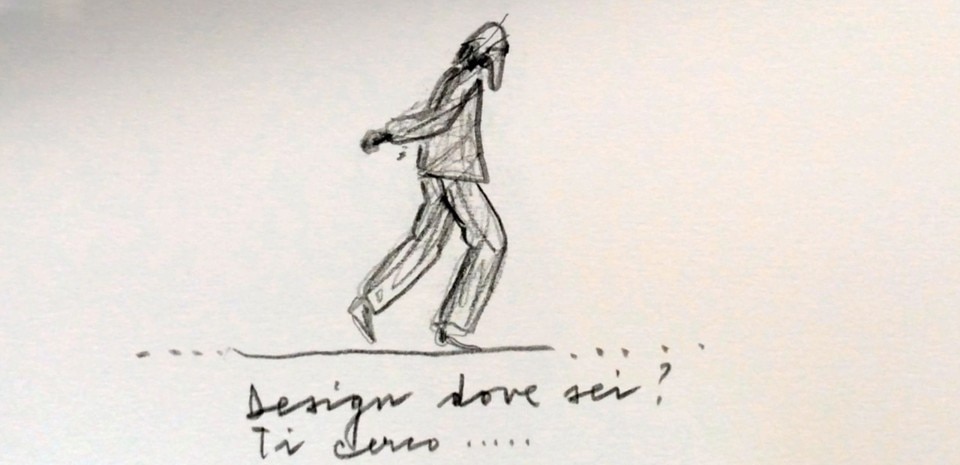 Design dove sei?
Ti cerco .....